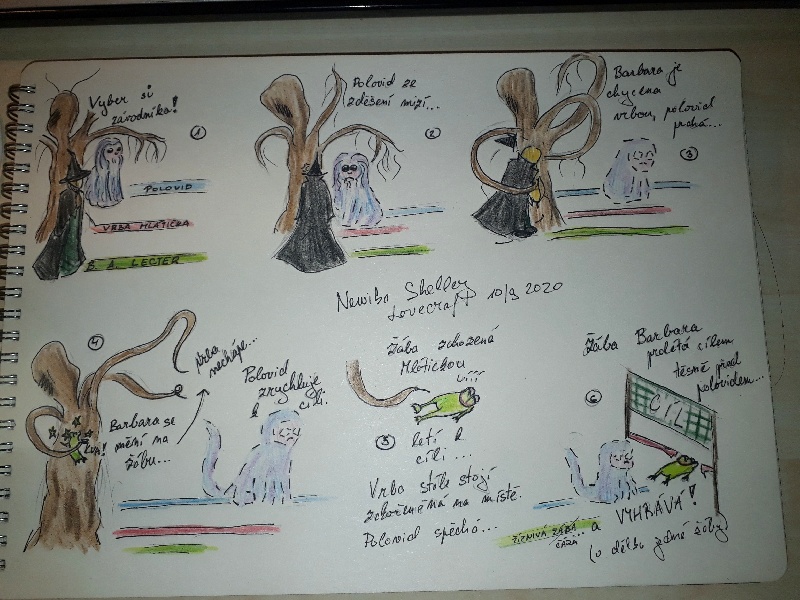 Vyber si
závodníka!
1
POLOVID
VRBA MLÁTIČKA
B. A. LECTER
Polovid ze
zděšení mizí...
2
Barbara je
chycena
vrbou, polovid
prchá...
3
Newiba Shelley
Lovecraft 10/9 2020
4
Vrba
nechápe...
Polovid
zrychluje
k cíli.
Barbara se
mění na
žábu...
Žába zhozená
Mlátičkou
5
letí k
cíli...
Vrba stále stojí
zkoprněná na místě.
Polovid spěchá...
Žába Barbara
proletá cílem
těsně před
polovidem...
6
CÍL
ŽÍZNIVÁ ŽÁBA
ČÁRA... a
VYHRÁVÁ!
(o délku jedné žáby)